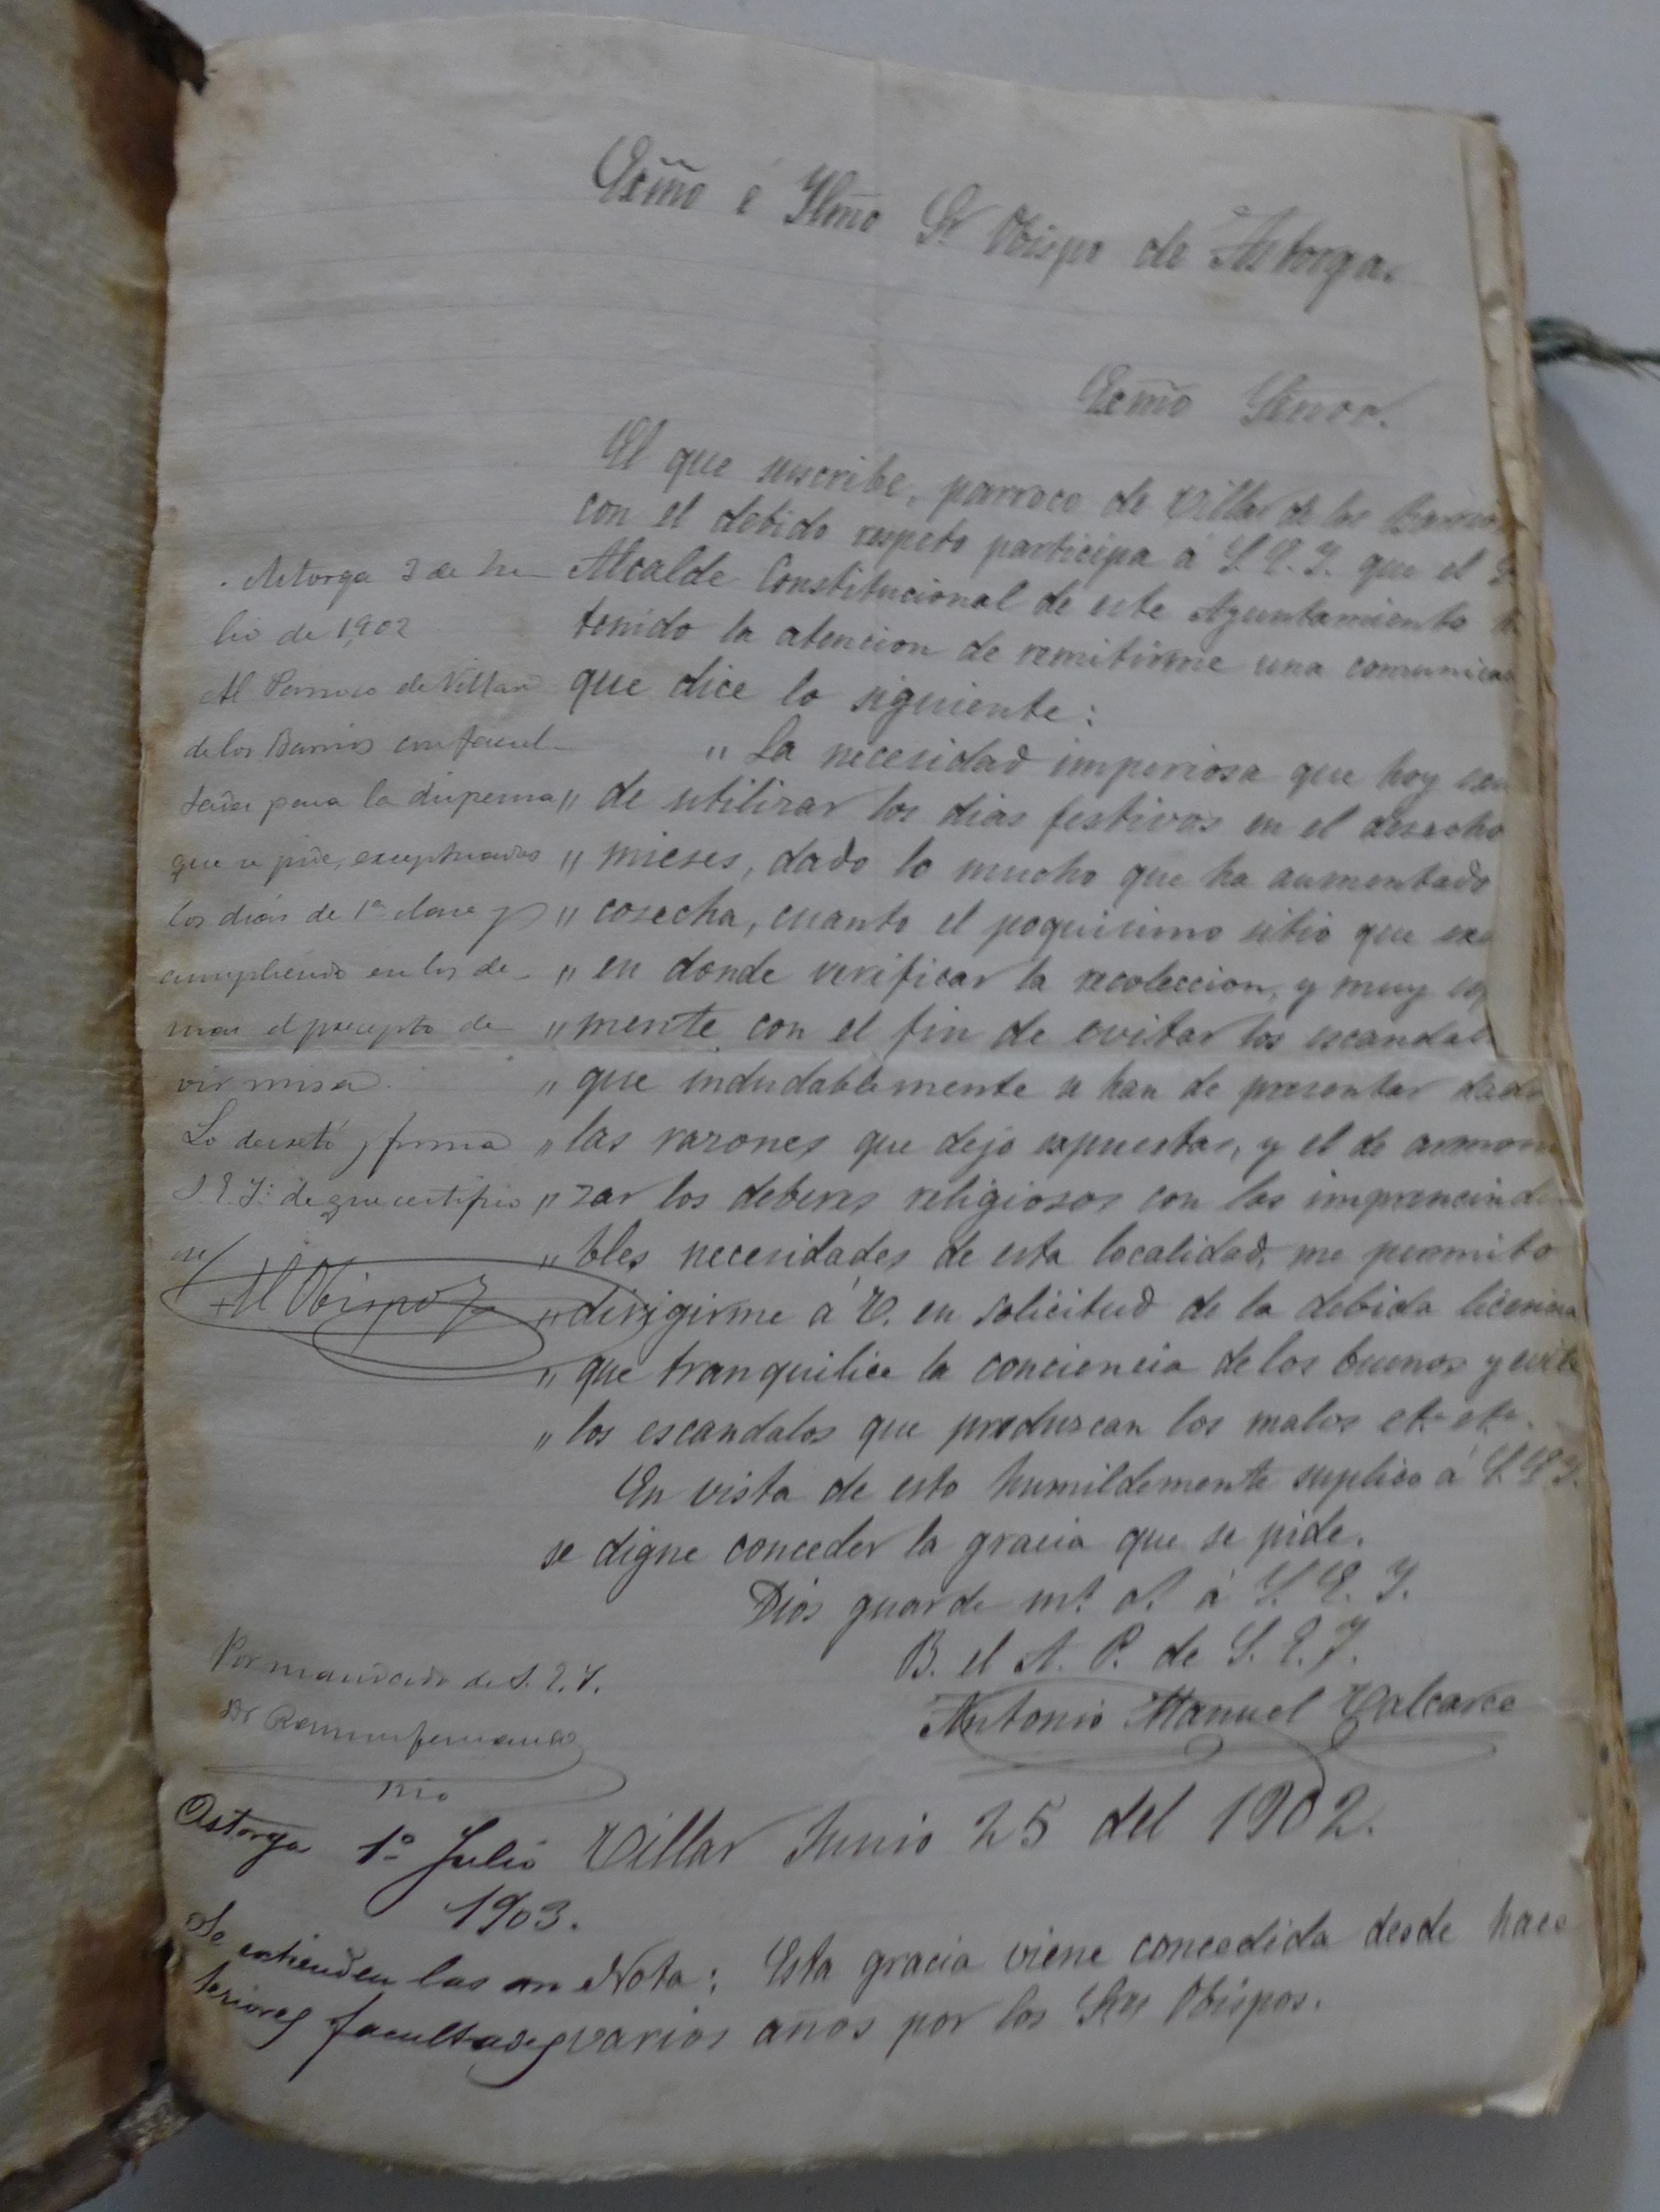 Exmo é Ylmo Sr. Obispo de Astorga.
Exmo Señor.
El que suscribe, parroco de Villar de los Barrios
con el debido respeto participa á S. E. Y. que el
Alcalde Constitucional de este Ayuntamiento
tenido la atencion de remitirme una comunica
que dice lo siguiente:
"La necesidad imperiosa que hoy
" de utilizar los dias festivos en el
" mieses, dado lo mucho que ha aumentado
" cosecha, cuanto el poquisimo sitio que
" en donde verificar la recoleccion, y muy esp
" mente con el fin de evitar los escandal
" que indudablemente se han de presentar dada
" las razones que dejo expuestas, y el de armoni
" zar los deberes religiosos con las imprescindi
" bles necesidades de esta localidad, me permito
" dirigirme á V. en solicitud de la debida licencia
" que tranquilice la conciencia de los buenos y evite
" los escandalos que produzcan los malos etª etª.
En vista de esto humildemente suplico á S. E. Y.
se digne conceder la gracia que se pide.
Dios guarde ms. as. á S. E. Y.
B. el A. P. de S. E. Y.
Antonio Manuel Valcarce
Villar Junio 25 del 1902.
Nota: Esta gracia viene concedida desde hace
varios años por los Sres Obispos.
Astorga 3 de Ju-
lio de 1,902
Al Parroco de Villar
de los Barrios con facul-
tades para la dispensa
que se pide, exceptuados
los dias de 1ª clase y
cumpliendo en los de-
mas el precepto de
oir misa.
Lo decretó y firma
S. E. Y. de que certifico
+ El Obispo
Por mandado de S. E. Y.
Dr
Srio
Astorga 1º Julio
1903.
Se extienden las an
teriores facultades